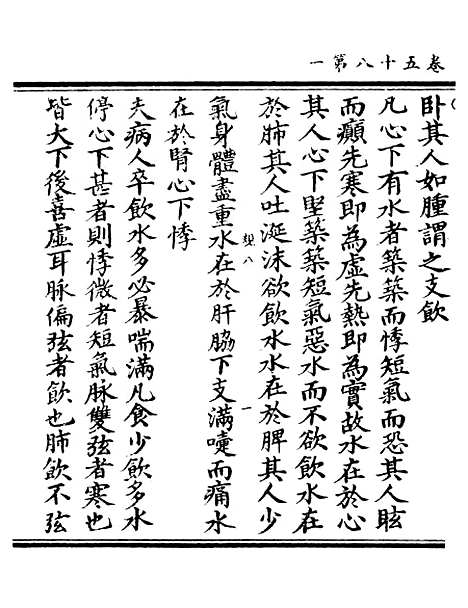 卷五十八第一
卧其人如腫謂之支飲
凡心下有水者築築而悸短氣而恐其人眩
而癲先寒即為虛先熱即為實故水在於心
其人心下堅築築短氣惡水而不欲飲水在
於肺其人吐涎沫欲飲水水在於脾其人少
氣身體盡重水在於肝脇下支滿嚏而痛水
在於腎心下悸
夫病人卒飲水多必暴喘滿凡食少飲多水
停心下甚者則悸微者短氣脉雙弦者寒也
皆大下後喜虛耳脉偏弦者飲也肺飲不弦
一